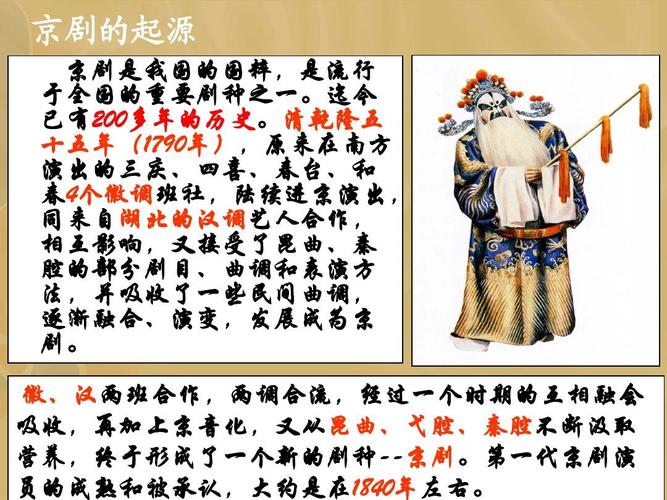 京剧的起源
京剧是我国的国粹，是流行
于全国的重要剧种之一。迄今
已有200多年的历史。清乾隆五
十五年（1790年），原来在南方
演出的三庆、四喜、春台、和
春4个徽调班社，陆续进京演出，
同来自湖北的汉调艺人合作，
相互影响，又接受了昆曲、秦
腔的部分剧目、曲调和表演方
法，并吸收了一些民间曲调，
逐渐融合、演变，发展成为京
剧。
徽、汉两班合作，两调合流，经过一个时期的互相融会
吸收，再加上京音化，又从昆曲、弋腔、秦腔不断汲取
营养，终于形成了一个新的剧种--京剧。第一代京剧演
员的成熟和被承认，大约是在1840年左右。